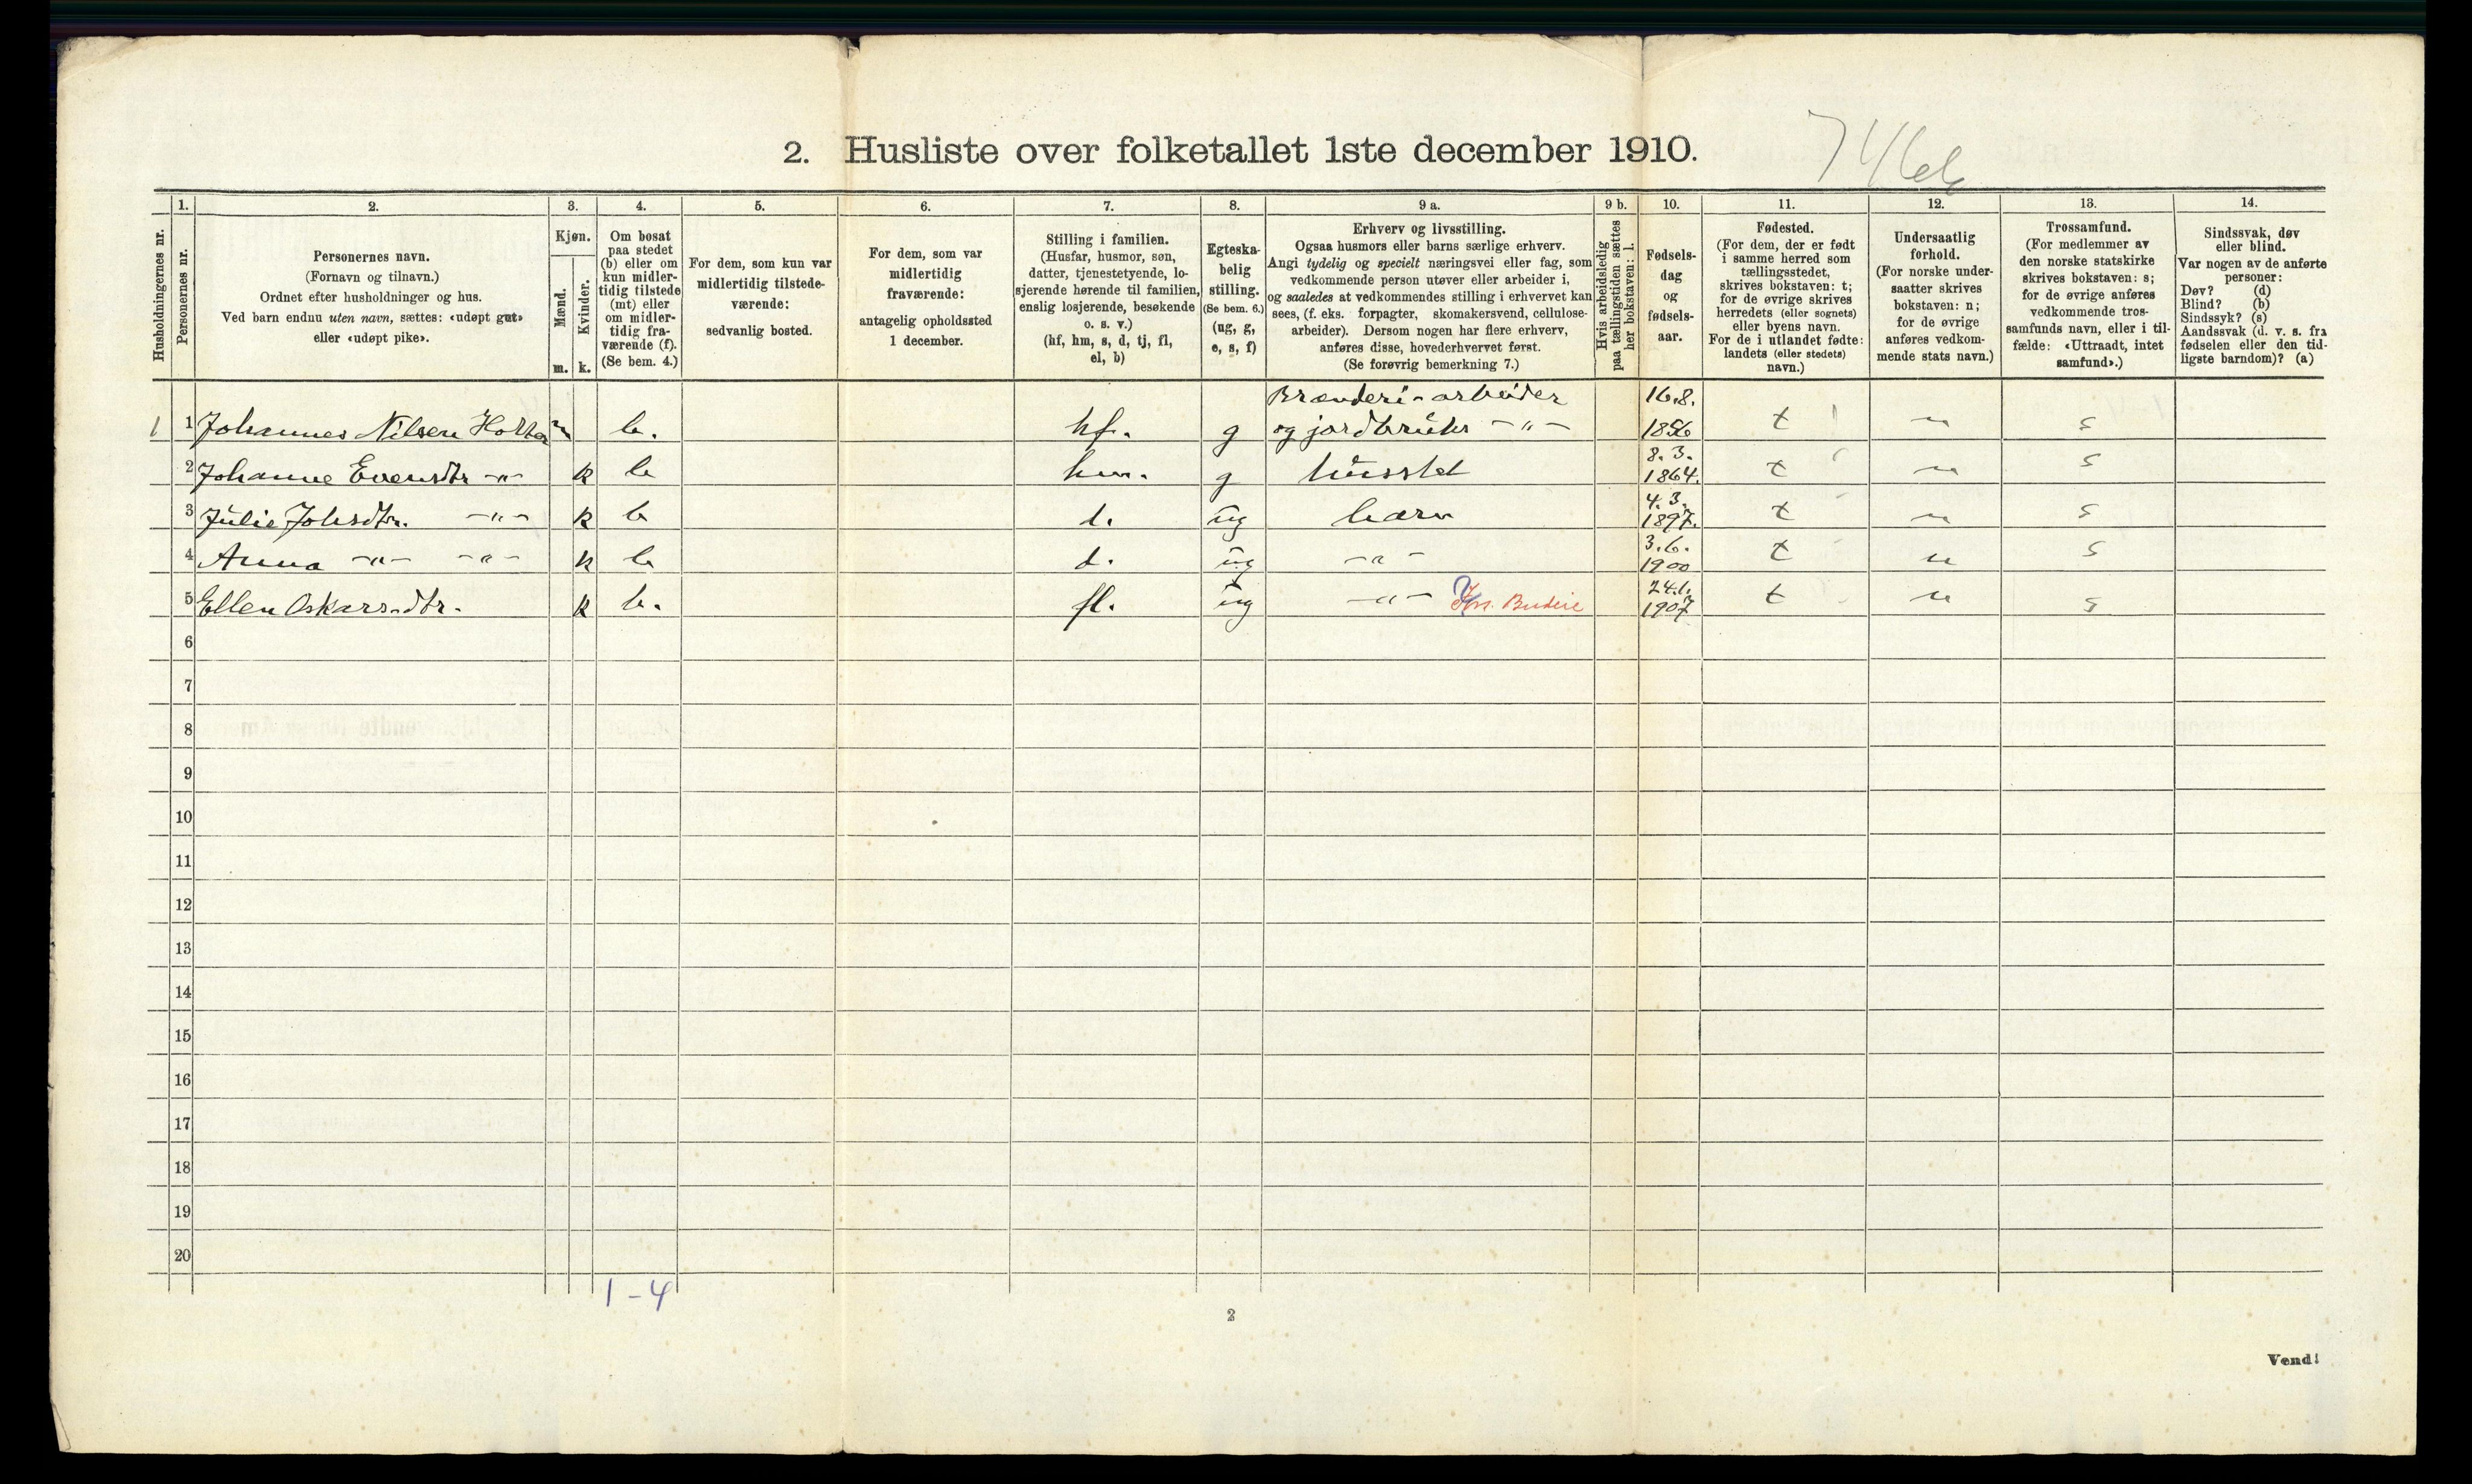 2. Husliste over folketallet 1ste december 1910.
Husholdningernes nr.
1.
Personernes nr.
2.
Personernes navn.
(Fornavn og tilnavn.)
Ordnet efter husholdninger og hus.
Ved barn endnu uten navn, sættes: «udøpt gut»
eller «udøpt pike».
3.
Kjøn.
Mænd.
Kvinder.
m. k.
4.
Om bosat
paa stedet
(b) eller om
kun midler-
tidig tilstede
(mt) eller
om midler-
tidig fra-
værende (f).
(Se bem. 4.)
5.
For dem, som kun var
midlertidig tilstede-
værende:
sedvanlig bosted.
6.
For dem, som var
midlertidig
fraværende:
antagelig opholdssted
1 december.
7.
Stilling i familien.
(Husfar, husmor, søn,
datter, tjenestetyende, lo-
sjerende hørende til familien,
enslig losjerende, besøkende
o. s. v.)
(hf, hm, s, d, tj, fl,
el, b)
8.
Egteska-
belig
stilling.
(Se bem. 6.)
(ug, g,
e, s, f)
9 a.
Erhverv og livsstilling.
Ogsaa husmors eller barns særlige erhverv.
Angi tydelig og specielt næringsvei eller fag, som
vedkommende person utøver eller arbeider i,
og saaledes at vedkommendes stilling i erhvervet kan
sees, (f. eks. forpagter, skomakersvend, cellulose-
arbeider). Dersom nogen har flere erhverv,
anføres disse, hovederhvervet først.
(Se forøvrig bemerkning 7.)
9 b.
Hvis arbeidsledig
paa tællingstiden sættes
her bokstaven: l.
10.
Fødsels-
dag
og
fødsels-
aar.
11.
Fødested.
(For dem, der er født
i samme herred som
tællingsstedet,
skrives bokstaven: t;
for de øvrige skrives
herredets (eller sognets)
eller byens navn.
For de i utlandet fødte:
landets (eller stedets)
navn.)
12.
Undersaatlig
forhold.
(For norske under-
saatter skrives
bokstaven: n;
for de øvrige
anføres vedkom-
mende stats navn.)
13.
Trossamfund.
(For medlemmer av
den norske statskirke
skrives bokstaven: s;
for de øvrige anføres
vedkommende tros-
samfunds navn, eller i til-
fælde: «Uttraadt, intet
samfund».)
14.
Sindssvak, døv
eller blind.
Var nogen av de anførte
personer:
Døv? (d)
Blind? (b)
Sindssyk? (s)
Aandssvak (d. v. s. fra
fødselen eller den tid-
ligste barndom)? (a)
Brænderi-arbeider 16.8.
1 1 Johannes Nilsen m b. hf. g og jordbruks -"- 1856 t n s
2 Johanne Evensdtr -"- k b hm. g husstel 8.3. 1864. t n s
3 Julie Johsdtr. -"- k b d. ug barn 4.3. 1897. t n s
4 Anna -"- -"- k b d. ug -"- 3.6. 1900 t n s
5 Ellen Oskarsdtr. k b. fl. ug -"- 24.1. 1907 t n s
6
7
8
9
10
11
12
13
14
15
16
17
18
19
20
1-4
2
Vend!